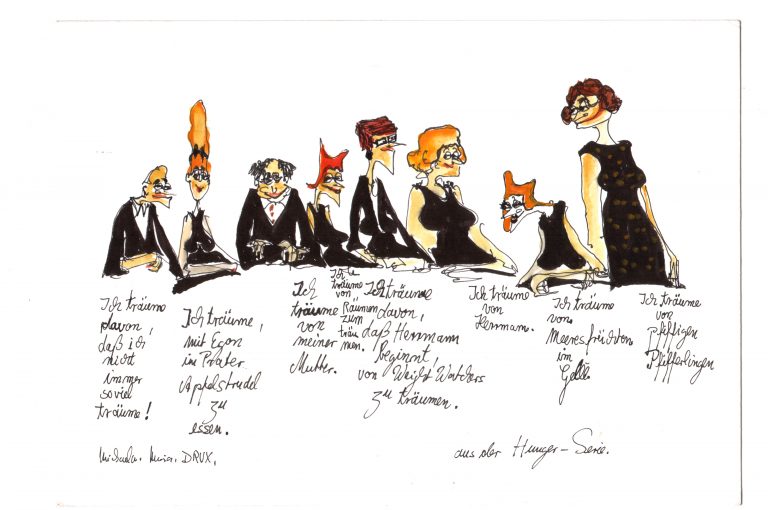 Ich träume
davon,
daß ich
nicht
immer
soviel
träume!
Ich träume,
mit Egon
im Prater
Apfelstrudel
zu
essen.
Ich
träume
von
meiner
Mutter.
Ich
träume
von
Räumen
zum
träu
men.
Ich träume
davon,
daß Herrmann
beginnt,
von Weight Watchers
zu träumen.
Ich träume
von
Herrmann.
Ich
träume
von
Meeresfrüchten
im
Gelee.
Ich träume
von
pfiffigen
Pfifferlingen
DRUX.
aus der Hunger-Serie.